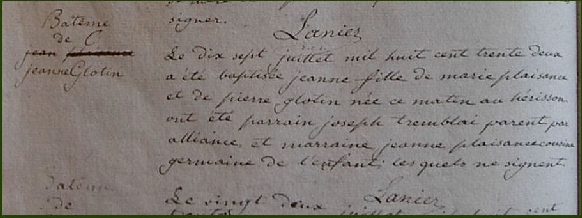 signer.
Lanier
Batême
de C
jean plaisance
jeanne Glotin
Le dix sept juillet mil huit cent trente deux
a été baptisée jeanne fille de marie plaisance
et de pierre glotin née ce matin au hérisson
ont été parrain joseph tremblai parent par
alliance, et marraine jeanne plaisance cousine
germaine de l'enfant, lesquels ne signent.
Lanier
Batême
de
Le vingt deux juillet cent